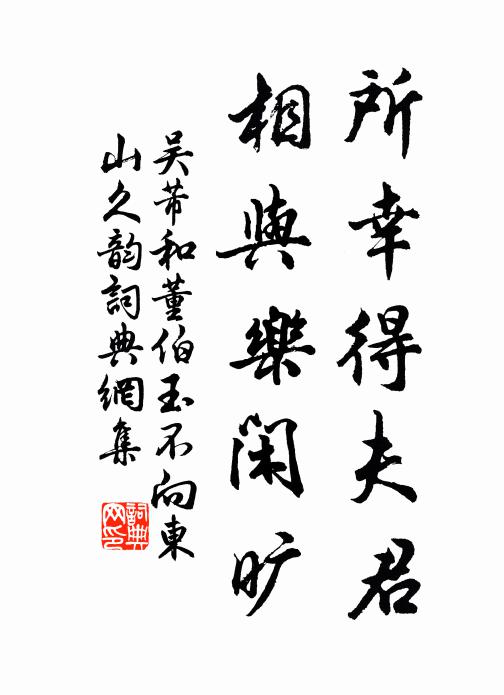 所幸得夫君
相與樂閑旷
吴芾和董伯玉不向東
山久韵詞典網集
詞典网印